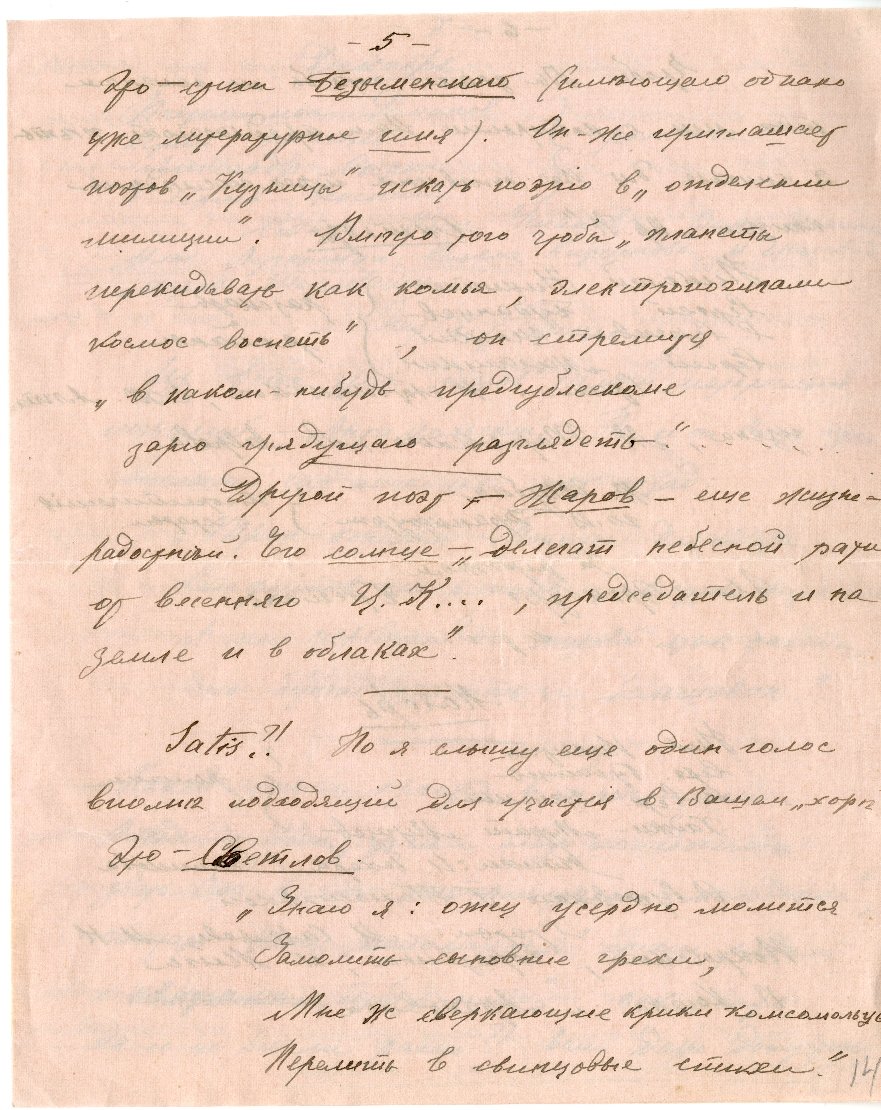 - 5 -
Это - стихи Безыменскаго (имѣющаго однако
уже литературное имя). Он-же приглашает
поэтов „Кузницы" искать поэзію в „отделении
милиции". Вмѣсто того чтобы „планеты
перекидывать как комья, электропоэзами
космос воспеть", он стремится
„в каком-нибудь предгублескоме
зарю грядущаго разглядеть."
Другой поэт - Жаров - еще жизне-
радостный. Его солнце - „делегат небесной рати
от весенняго Ц.К...., председатель и на
земле и в облаках".
Satis?!! Но я слышу еще один голос
вполнѣ подходящій для участія в Вашем „хорѣ
Это - Светлов.
„Знаю я: отец усердно молится
Замолить сыновние грехи,
Мне ж сверкающие крики комсомольца
Перелить в свинцовые стихи."
14